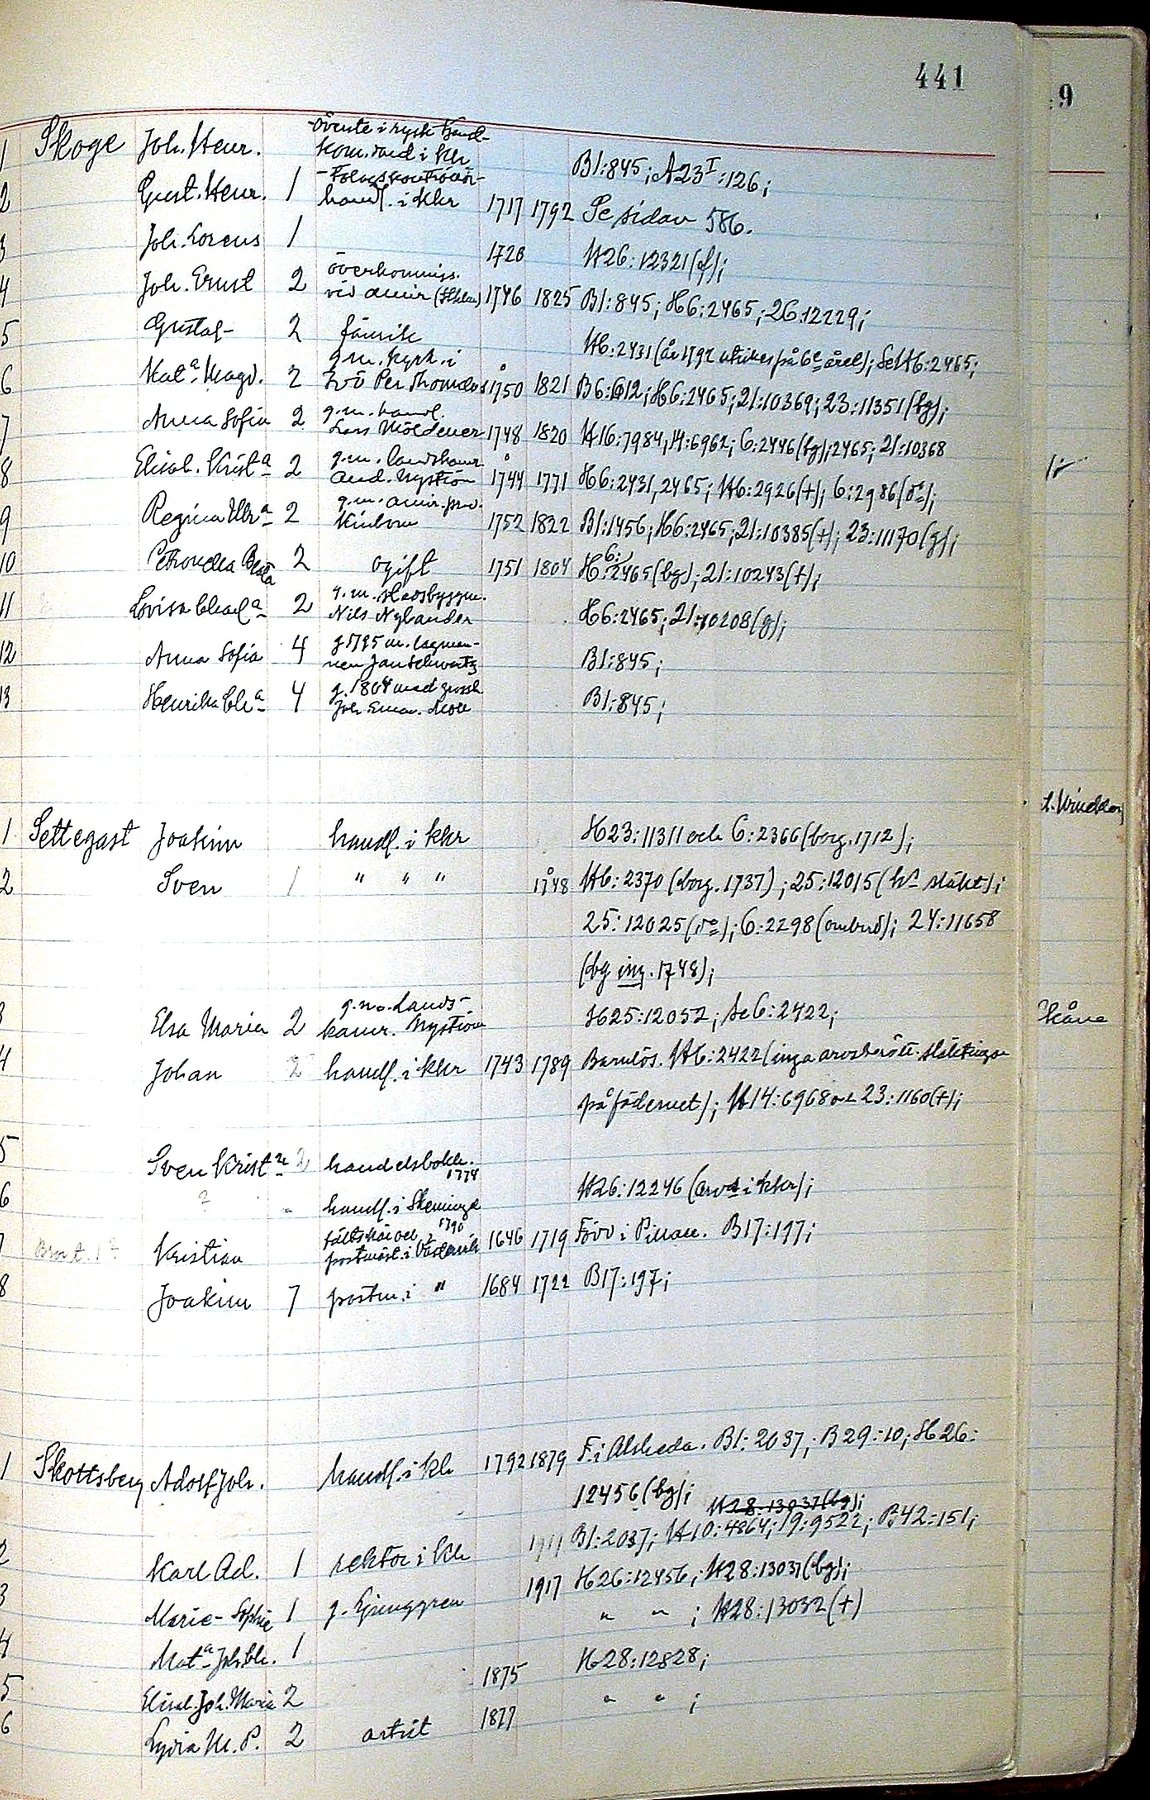 441
9
1 Skoge Joh. Henr.
kom. rand i Khr B1:845; A23I:126;
2 Gust. Henr. 1 handl. i Khr 1717 1792 Se sidan 586.
3 Joh. Lorens 1 1728 H26:12321(f);
4 Joh. Ernst 2 överkommiss.
vid amir 1746 1825 B1:845; H6:2465; 26:12229;
5 Gustaf 2 fänrik H6:2431 (år 1792 utrikes på 6e året); Se H6:2465;
6 Kata Magd. 2 g.m. kyrk. i
Ivö Per Thomæus 1750 1821 B6:612; H6:2465; 21:10369; 23:11351(bg);
7 Anna Sofia 2 g.m. handl.
Lars Möldener 1748 1820 H16:7984, 14:6962; 6:2446(bg); 2465; 21:10368
8 Elisab. Krista 2 g.m. landskamr
And. Nyström 1744 1771 H6:2431, 2465; H6:2926(+); 6:2986(do);
9 Regina Ulra 2 g.m. amir.
1752 1822 B1:1456; H6:2465; 21:10385(+); 23:11170(g);
10 Petronella Beata 2 ogift 1751 1804 H6:2465(bg); 21:10243(+);
11 Lovisa Charla 2 g.m. skeppsbyggm.
Nils Nylander H6:2465; 21:10208(g);
12 Anna Sofia 4 g. 1795 m. lagman-
nen Jan Schwartz B1:845;
13 Henrika Cha 4 g. 1804 med grossh
Joh. Eman. B1:845;
t. Windden
1 Settegast Joakim handl. i Khr H23:11311 och 6:2366 (borg. 1712);
2 Sven 1 " " " 1748 H6:2370 (borg. 1737); 25:12015 (hs släkt);
25:12025 (do); 6:2298 (ombud); 24:11658
(bg ing. 1748);
3 Elsa Maria 2 g.m. Lands-
kamr. Nyström H25:12052; Se 6:2422;
Skåne
4 Johan 2 handl. i Khr 1743 1789 Barnlös. H6:2422 (inga arvsberätt. släktingar
på fädernet); H14:6968 och 23:1160(+);
5 Sven Kristn 2 handelsbokh.
1774
6 ? handl. i Skeninge H26:12246 (arvs i Khr);
1790
7 Kristian postmäst. i Västervik 1646 1719 Född i Pillau. B17:197;
8 Joakim 7 postm. i " 1684 1722 B17:197;
1 Skottsberg Adolf Joh. handl. i Khr 1792 1879 F. i Alsheda. B1:2037; B29:10; H26:
12456 (bg); H28:13037(bg);
2 Karl Ad. 1 rektor i Khr 1911 B1:2037; H10:4864; 19:9522; B42:151;
3 Marie-Sophie 1 g. Ljunggren 1917 H26:12456; H28:13037(bg);
4 Mata Joh. Ch. 1 " " ; H28:13032(+)
5 Elisab. Joh. Maria 2 1875 H28:12828;
6 Lydia M. P. 2 artist 1877 " " ;